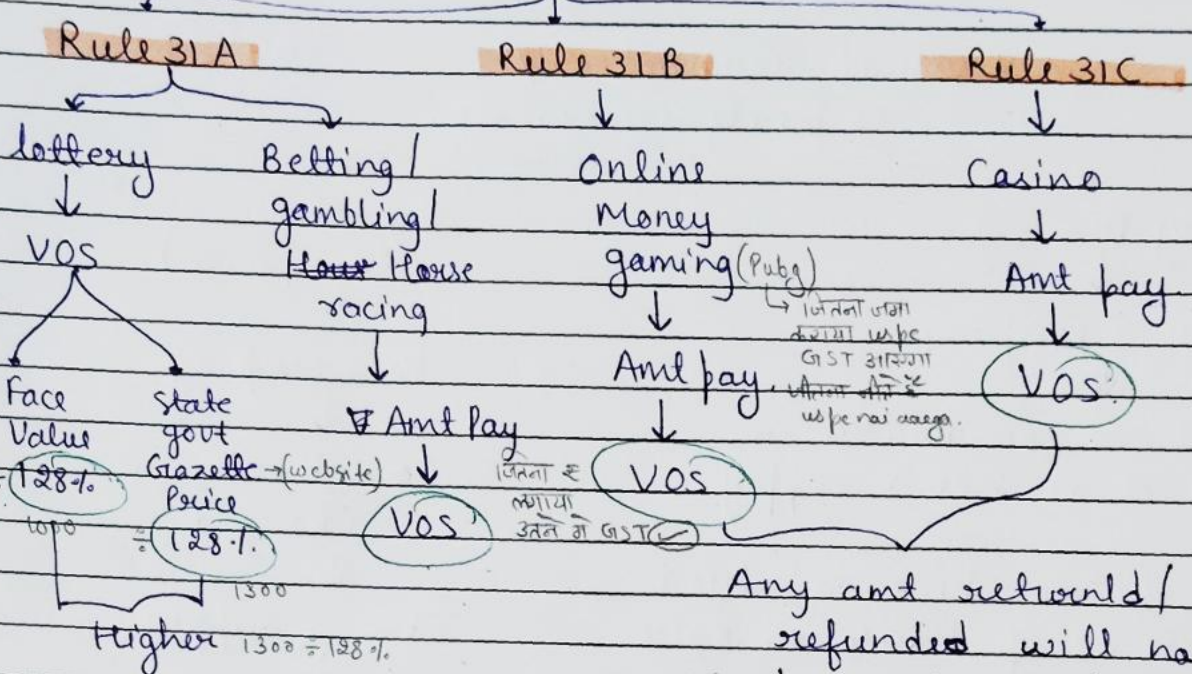 Rule 31 A
Rule 31 B
Rule 31 C
lottery
VOS
Face
Value
÷ 128%
1000
State
govt
Gazette → (website)
Price
÷ 128%
1300
Higher 1300 ÷ 128%
Betting /
gambling /
Horse
racing
Amt Pay
VOS
जितना रु
लगाया
उतने में GST
Online
Money
gaming (Pubg)
जितना जमा
कराया uspe
GST आएगा
जीतना जीते है
uspe nai aaega.
Amt pay.
VOS
Casino
Amt pay
VOS.
Any amt retuernld /
refunded will no